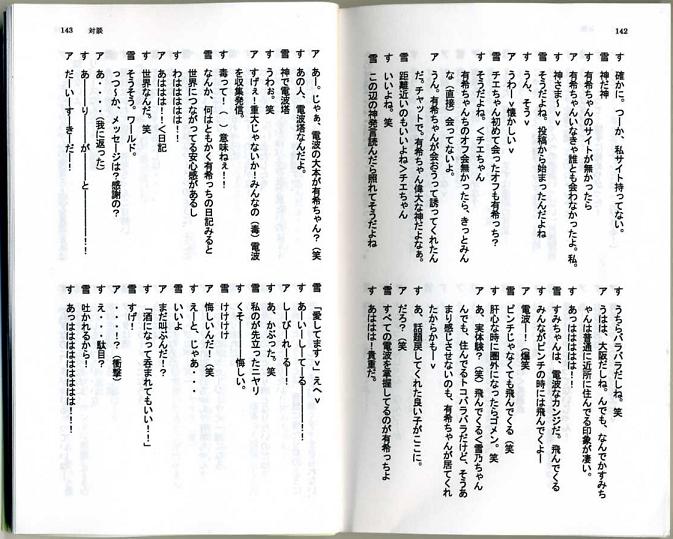 142
す 確かに。つーか、私サイト持ってない。
雪 神だ神
す 有希ちゃんのサイトが無かったら
ア 有希ちゃんいなきゃ誰とも会わなかったよ。私。
す 神さま〜ｖｖ
す うん、そうｖ
雪 そうだよね。投稿から始まったんだよね
ア うわー懐かしいｖ
雪 チエちゃん初めて会ったオフも有希っち？
す そうだよね。＜チエちゃん
雪 有希ちゃんちのオフ会無かったら、きっとみん
な（直接）会ってないよ。
ア うん。有希ちゃんが会おうって誘ってくれたん
だ。チャットで。有希ちゃん偉大な神だよなぁ。
雪 距離近いのもいいよね＞チエちゃん
す いいよね。笑
雪 この辺の神発言読んだら照れてそうだよね
す うちらバラバラだしね。笑
ア うはは、大阪だしね。んでも、なんでかすみち
ゃんは普通に近所に住んでる印象が凄い。
す あっははははは！！
雪 すみちゃんは、電波なカンジだ。飛んでくる
す みんながピンチの時には飛んでくよー
ア 電波ー！（爆笑
雪 ピンチじゃなくても飛んでくる（笑
す 肝心な時に圏外になったらゴメン。笑
ア あ、実体験？（笑）飛んでくる＜雪乃ちゃん
んでも、住んでるトコバラバラだけど、そうあ
まり感じさせないのも、有希ちゃんが居てくれ
たからかもーｖ
す あ、話題戻してくれた良い子がここに。
ア だろ？（笑
雪 すべての電波を掌握してるのが有希っちよ
す あははは！貴重だ。
143 対談
ア あー。じゃぁ、電波の大本が有希ちゃん？（笑
す あの人、電波塔なんだよ。
雪 神で電波塔
す うわぉ。笑
ア すげぇ！重大じゃないか！みんなの（毒）電波
を収集発信。
す 毒って！（）意味ねぇ！！
雪 なんか、何はともかく有希っちの日記みると
世界につながってる安心感があるし
す わはははははは！！
ア あははは！！＜日記
す 世界なんだ。笑
雪 そうそう。ワールド。
す っつーか、メッセージは？感謝の？
ア あ・・・・（我に返った）
す あ――り――が――と――――――！！
ア だーいーすーきーだー！
雪 「愛してますｖ」えへｖ
す あーいーしーてーる――――！！
ア しーびーれーるー！
す あ、かぶった。笑
雪 私のが先立ったニヤリ
す くそ――――悔しい。
雪 けけけけ
ア 悔しいんだ！（笑
す えーと、じゃあ・・・
雪 いいよ
ア まだ叫ぶんだ！？
す 「酒になって呑まれてもいい！！」
雪 すげ！
ア ・・・・！？（衝撃）
す え・・・駄目？
雪 吐かれるから！
す あっはははははははははは！！